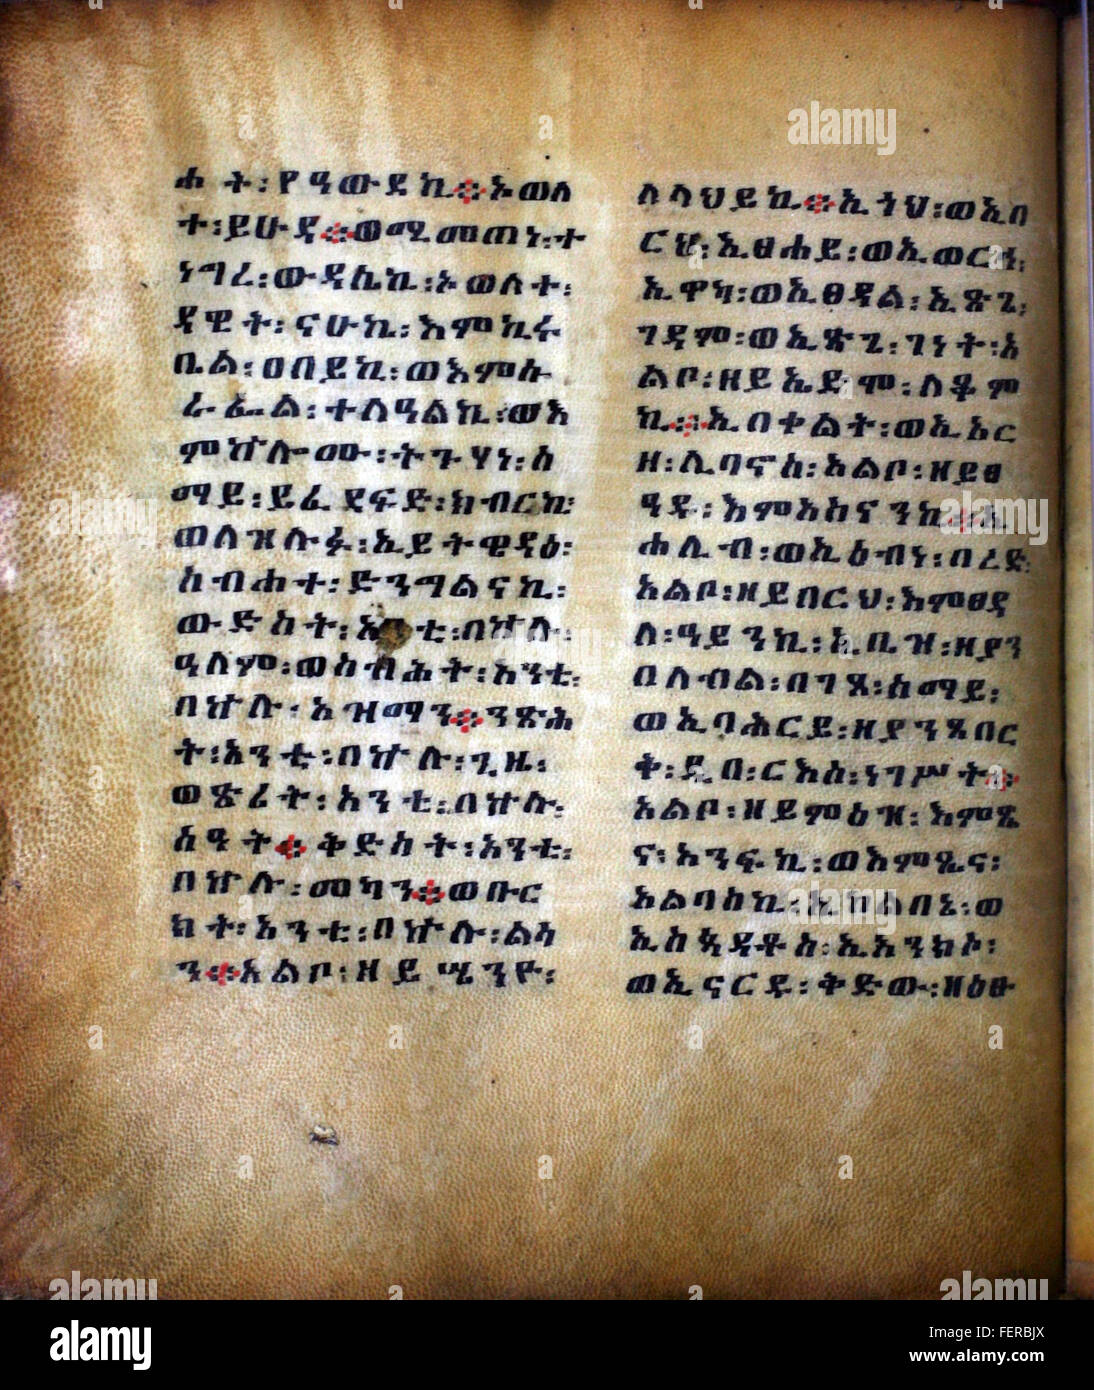 ሐት፡የዓውደኪ፨ኦወለ
ተ፡ይሁዳ፨ወሚመጠነ፡ተ
ነግረ፡ውዳሴኪ፡ኦወለተ፡
ዳዊት፡ናሁኪ፡እምኪሩ
ቤል፡ዐበይኪ፡ወእምሱ
ራፌል፡ተለዓልኪ፡ወእ
ምኵሎሙ፡ትጉሃነ፡ሰ
ማይ፡ይፈደፍድ፡ክብርኪ፡
ወለዝሉፉ፡ኢይትዌዳዕ፡
ስብሐተ፡ድንግልናኪ፡
ውድስት፡አንቲ፡በኵሉ፡
ዓለም፡ወስብሕት፡አንቲ፡
በኵሉ፡አዝማን፨ንጽሕ
ት፡አንቲ፡በኵሉ፡ጊዜ፡
ወጽሪት፡አንቲ፡በኵሉ፡
ሰዓት፨ቅድስት፡አንቲ፡
በኵሉ፡መካን፨ወቡር
ክት፡አንቲ፡በኵሉ፡ልሳ
ን፨አልቦ፡ዘይሤንዮ፡
ለላህይኪ፨ኢጎህ፡ወኢበ
ርህ፡ኢፀሐይ፡ወኢወርኅ፡
ኢዋካ፡ወኢፀዳል፡ኢጽጌ፡
ገዳም፡ወኢጽጌ፡ገነት፡አ
ልቦ፡ዘይኤድሞ፡ለቆም
ኪ፨ኢበቀልት፡ወኢአር
ዘ፡ሊባኖስ፡አልቦ፡ዘይፀ
ዓዱ፡እምአስናንኪ፨ኢ
ሐሊብ፡ወኢዕብነ፡በረድ፡
አልቦ፡ዘይበርህ፡እምፀዳ
ለ፡ዓይንኪ፡ኢቤዝ፡ዘያን
በለብል፡በገጸ፡ሰማይ፡
ወኢባሕርይ፡ዘያንጸበር
ቅ፡ዲበ፡ርእሰ፡ነገሥት፨
አልቦ፡ዘይምዕዝ፡እምጼ
ና፡አንፍኪ፡ወእምጼና፡
አልባስኪ፡ኢከልበኔ፡ወ
ኢስጳዳቶስ፡ኢአንክኦ፡
ወኢናርዱ፡ቅድው፡ዘዕፁ